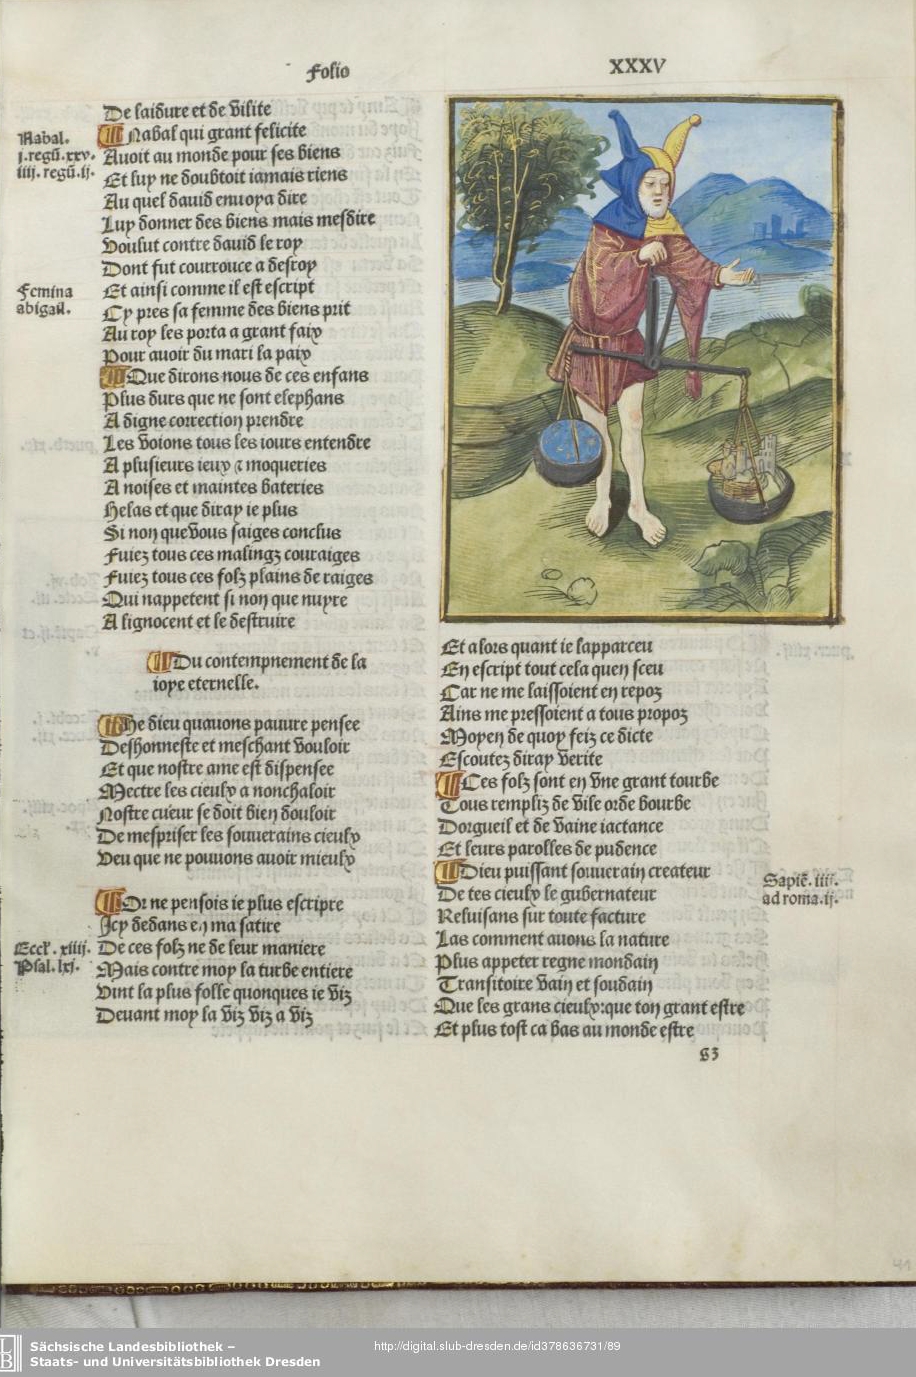 Folio
XXXV
De laidure et de vilite
Nabal qui grant felicite
Avoit au monde pour ses biens
Et luy ne doubtoit iamais riens
Au quel dauid enuoya dire
Luy donner des biens mais mesdire
Voulut contre dauid le roy
Dont fut courrouce a desroy
Et ainsi comme il est escript
Cy pres sa femme des biens prit
Au roy les porta a grant faix
Pour auoir du mari la paix
Que dirons nous de ces enfans
Plus durs que ne sont elephans
A digne correction prendre
Les voions tous les iours entendre
A plusieurs ieux ⁊ moqueries
A noises et maintes bateries
Helas et que diray ie plus
Si non que vous saiges conclus
Fuiez tous ces malingz couraiges
Fuiez tous ces folz plains de raiges
Qui nappetent si non que nuyre
A lignocent et le destruire
Nabal.
j.regū.xxv.
iiij.regū.ij.
Femina
abigail.
Du contempnement de la
ioye eternelle.
He dieu quauons pauure pensee
Deshonneste et meschant vouloir
Et que nostre ame est dispensee
Mectre les cieulx a nonchaloir
Nostre cueur se doit bien douloir
De mespriser les souuerains cieulx
Veu que ne pouuons auoir mieulx
Or ne pensois ie plus escripre
Icy dedans en ma satire
De ces folz ne de leur maniere
Mais contre moy la turbe entiere
Vint la plus folle quonques ie viz
Deuant moy la viz viz a viz
Eccl'. xiiij.
Psal. lxj.
Et alors quant ie lapparceu
En escript tout cela quen sceu
Car ne me laissoient en repoz
Ains me pressoient a tous propoz
Moyen de quoy feiz ce dicte
Escoutez diray verite
Ces folz sont en vne grant tourbe
Tous rempliz de vile orde bourbe
Dorgueil et de vaine iactance
Et leurs parolles de pudence
Dieu puissant souuerain createur
De tes cieulx le gubernateur
Reluisans sur toute facture
Las comment auons la nature
Plus appeter regne mondain
Transitoire vain et soudain
Que les grans cieulx:que ton grant estre
Et plus tost ca bas au monde estre
Sapiē. iiij.
ad roma.ij.
g3
Sächsische Landesbibliothek –
Staats- und Universitätsbibliothek Dresden
http://digital.slub-dresden.de/id378636731/89